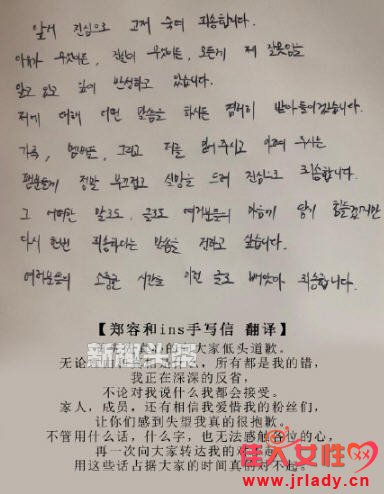 앞서 진심으로 고개 숙여 죄송합니다.
이유가 무엇이든, 진실이 무엇이든, 모든게 제 잘못임을
알고 있고 깊이 반성하고 있습니다.
저에 대해 어떤 말씀을 하시든 겸허히 받아들이겠습니다.
가족, 멤버들, 그리고 저를 믿어주시고 아껴주시는
팬분들께 정말 부끄럽고 실망을 드려 진심으로 죄송합니다.
그 어떠한 말로도, 글로도 여러분들의 마음에 닿지 힘들겠지만
다시 한번 죄송하다는 말씀을 전하고 싶습니다.
여러분들의 소중한 시간을 이런 글로 빼앗아 죄송합니다.
【郑容和ins手写信 翻译】
新趣头条
大家低头道歉。
无论 所有都是我的错，
我正在深深的反省，
不论对我说什么我都会接受。
家人，成员，还有相信我爱惜我的粉丝们，
让你们感到失望我真的很抱歉。
不管用什么话，什么字，也无法感触各位的心，
再一次向大家转达我的
用这些话占据大家的时间真的对不起。
佳人女性网
www.jrlady.cn